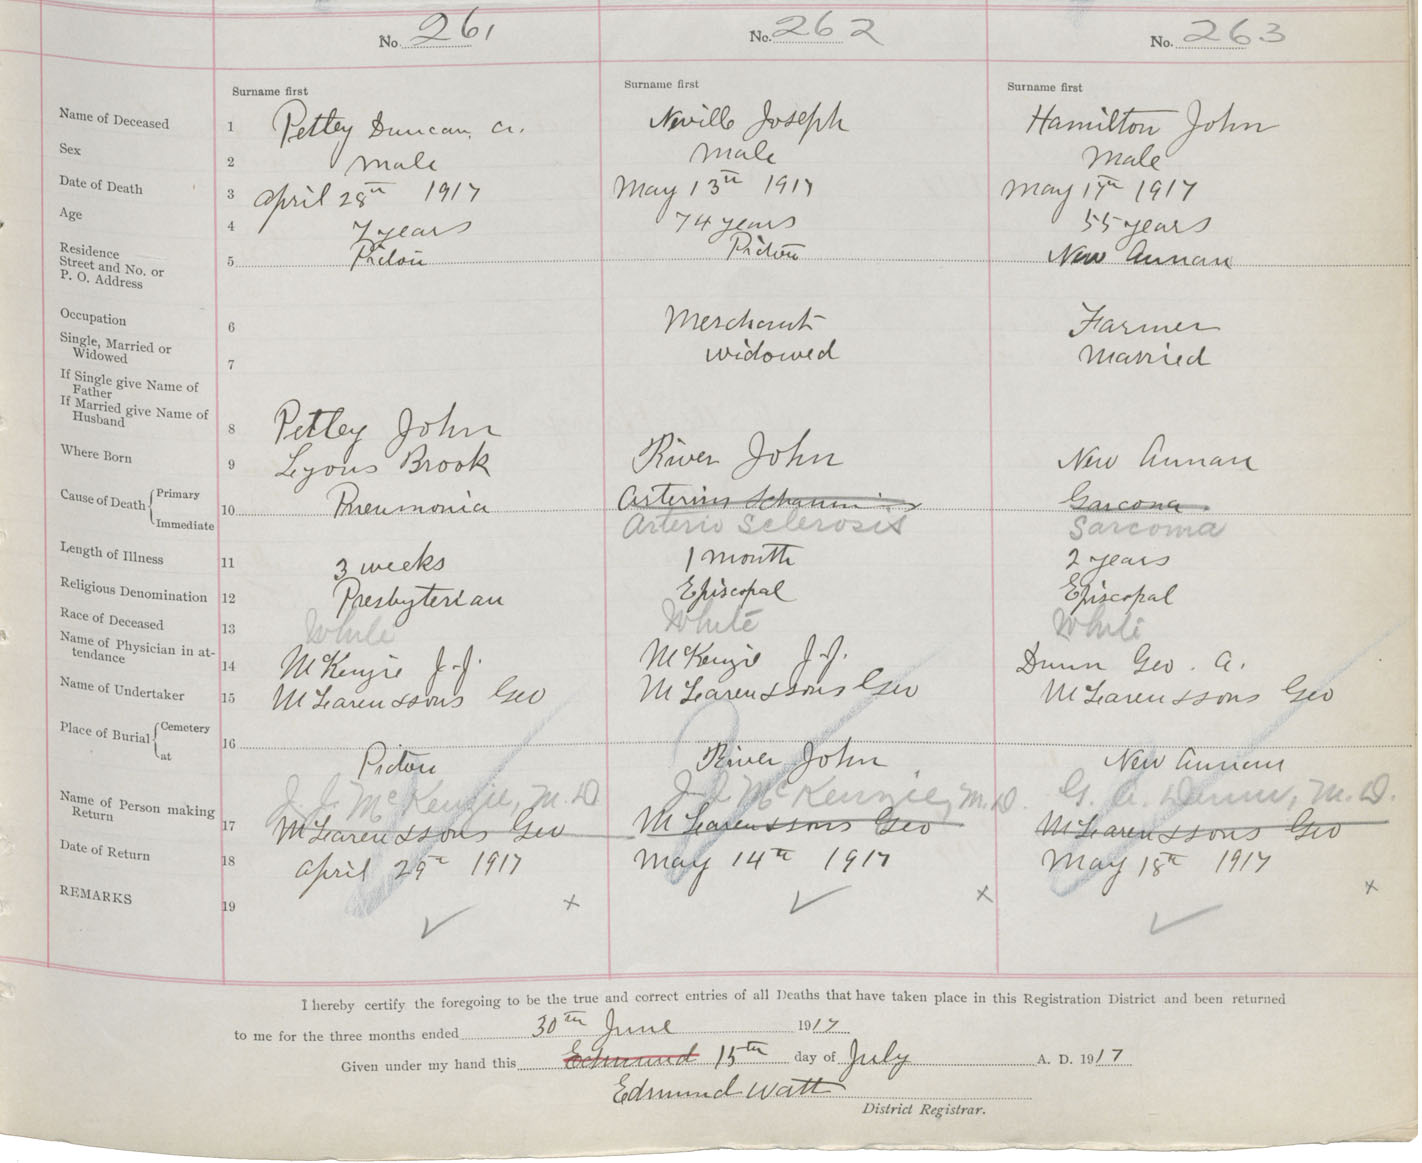 No. 261 No. 262 No. 263
Surname first Surname first Surname first
Name of Deceased 1 Petley Duncan, A. Neville Joseph Hamilton John
Sex 2 Male Male Male
Date of Death 3 April 28th 1917 May 13th 1917 May 17th 1917
Age 4 7 years 74 years 55 years
Residence
Street and No. or
P. O. Address 5 Pictou Pictou New Annan
Occupation 6 Merchant Farmer
Single, Married or
Widowed 7 Widowed Married
If Single give Name of
Father
If Married give Name of
Husband 8 Petley John
Where Born 9 Lyons Brook River John New Annan
Cause of Death { Primary
Immediate 10 Pneumonia Arterius Garcona
Arterio Sclerosis Sarcoma
Length of Illness 11 3 weeks 1 month 2 years
Religious Denomination 12 Presbyterian Episcopal Episcopal
Race of Deceased 13 White White White
Name of Physician in at-
tendance 14 McKenzie J. J. McKenzie J. J. Dunn Geo. A.
Name of Undertaker 15 McLaren & Sons Geo McLaren & Sons Geo McLaren & Sons Geo
Place of Burial { Cemetery
at 16 Pictou River John New Annan
J. J. McKenzie, M.D J. J. McKenzie, M.D. G. A. Dunn, M.D.
Name of Person making
Return 17 McLaren & Sons Geo McLaren & Sons Geo McLaren & Sons Geo
Date of Return 18 April 29th 1917 May 14th 1917 May 18th 1917
REMARKS 19 x x x
I hereby certify the foregoing to be the true and correct entries of all Deaths that have taken place in this Registration District and been returned
to me for the three months ended 30th June 1917
Given under my hand this Edmund 15th day of July A. D. 1917
Edmund Watt
District Registrar.